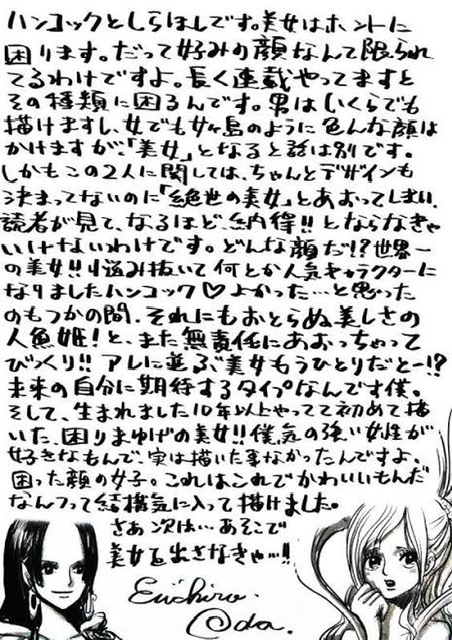 ハンコックとしらほしです。美女はホントに
困ります。だって好みの顔なんて限られ
てるわけですよ。長く連載やってますと
その種類に困るんです。男はいくらでも
描けますし、女でも女ヶ島のように色んな顔は
かけますが、「美女」となると話は別です。
しかもこの2人に関しては、ちゃんとデザインも
決まってないのに「絶世の美女」とあおってしまい、
読者が見て、なるほど、納得!!とならなきゃ
いけないわけです。どんな顔だ!?世界一
の美女!!悩み抜いて何とか人気キャラクターに
なりましたハンコック♡よかった…と思った
のもつかの間、それにもおとらぬ美しさの
人魚姫!と、また無責任にあおっちゃって
びっくり!!アレに並ぶ美女もうひとりだとー!?
未来の自分に期待するタイプなんです僕。
そして、生まれました10年以上やってて初めて描
いた、困りまゆげの美女!!僕気の強い女性が
好きなもんで、実は描いた事なかったんですよ、
困った顔の女子。これはこれでかわいいもんだ
なんつって結構気に入って描けました。
さあ次は…あそこで
美女を出さなきゃ…!!
Eiichiro.
Oda.